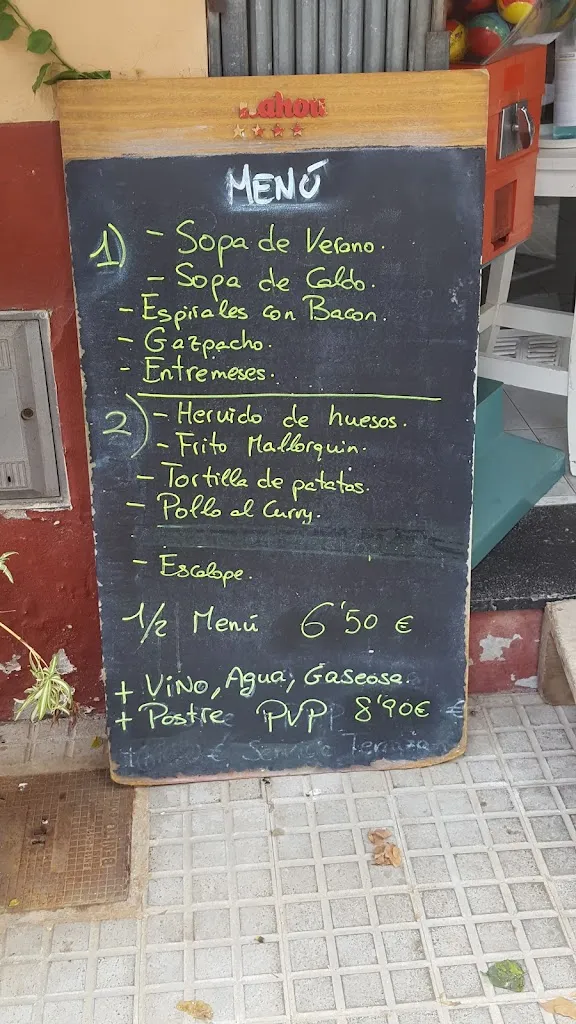 Mahou
MENÚ
1) - Sopa de Verano.
- Sopa de Caldo.
- Espirales con Bacon.
- Gazpacho.
- Entremeses.
2) - Hervido de huesos.
- Frito Mallorquin.
- Tortilla de patatas.
- Pollo al Curry.
- Escalope.
1/2 Menú 6'50 €
+ Vino, Agua, Gaseosa.
+ Postre PVP 8'90€ €
€ Servicio Terraza